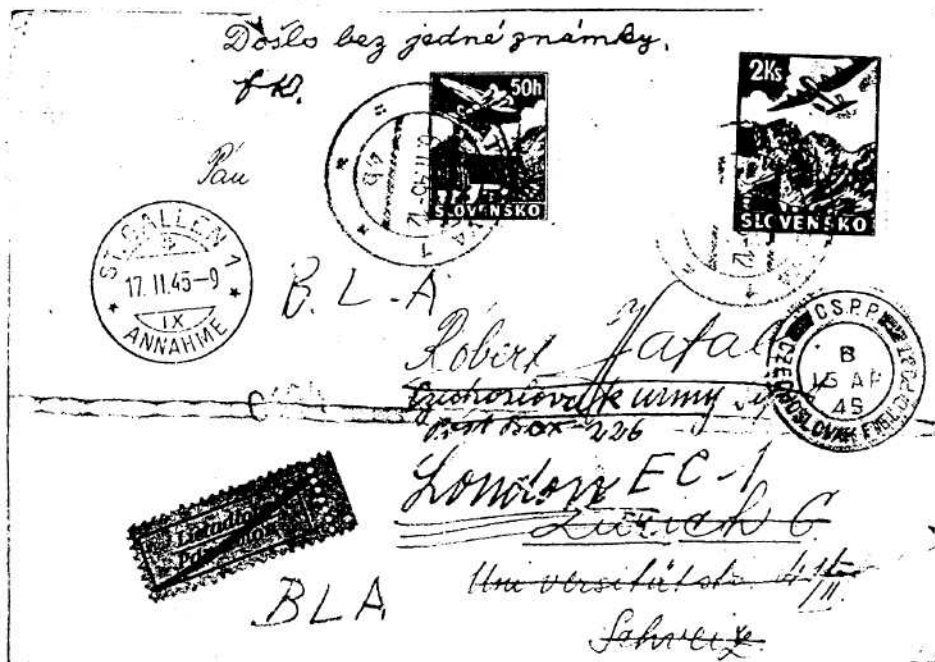 Došlo bez jedné známky.
50h
SLOVENSKO
2Ks
SLOVENSKO
Pán
ST. GALLEN 1
17. II. 45–9
IX
ANNAHME
B.L-A
Róbert
army
Post Box 226
London EC-1
Zürich 6
Universitätstr.
Schweiz
C.S.P.P.
B
15 AP
45
CZECHOSLOVAK FIELD POST
BLA